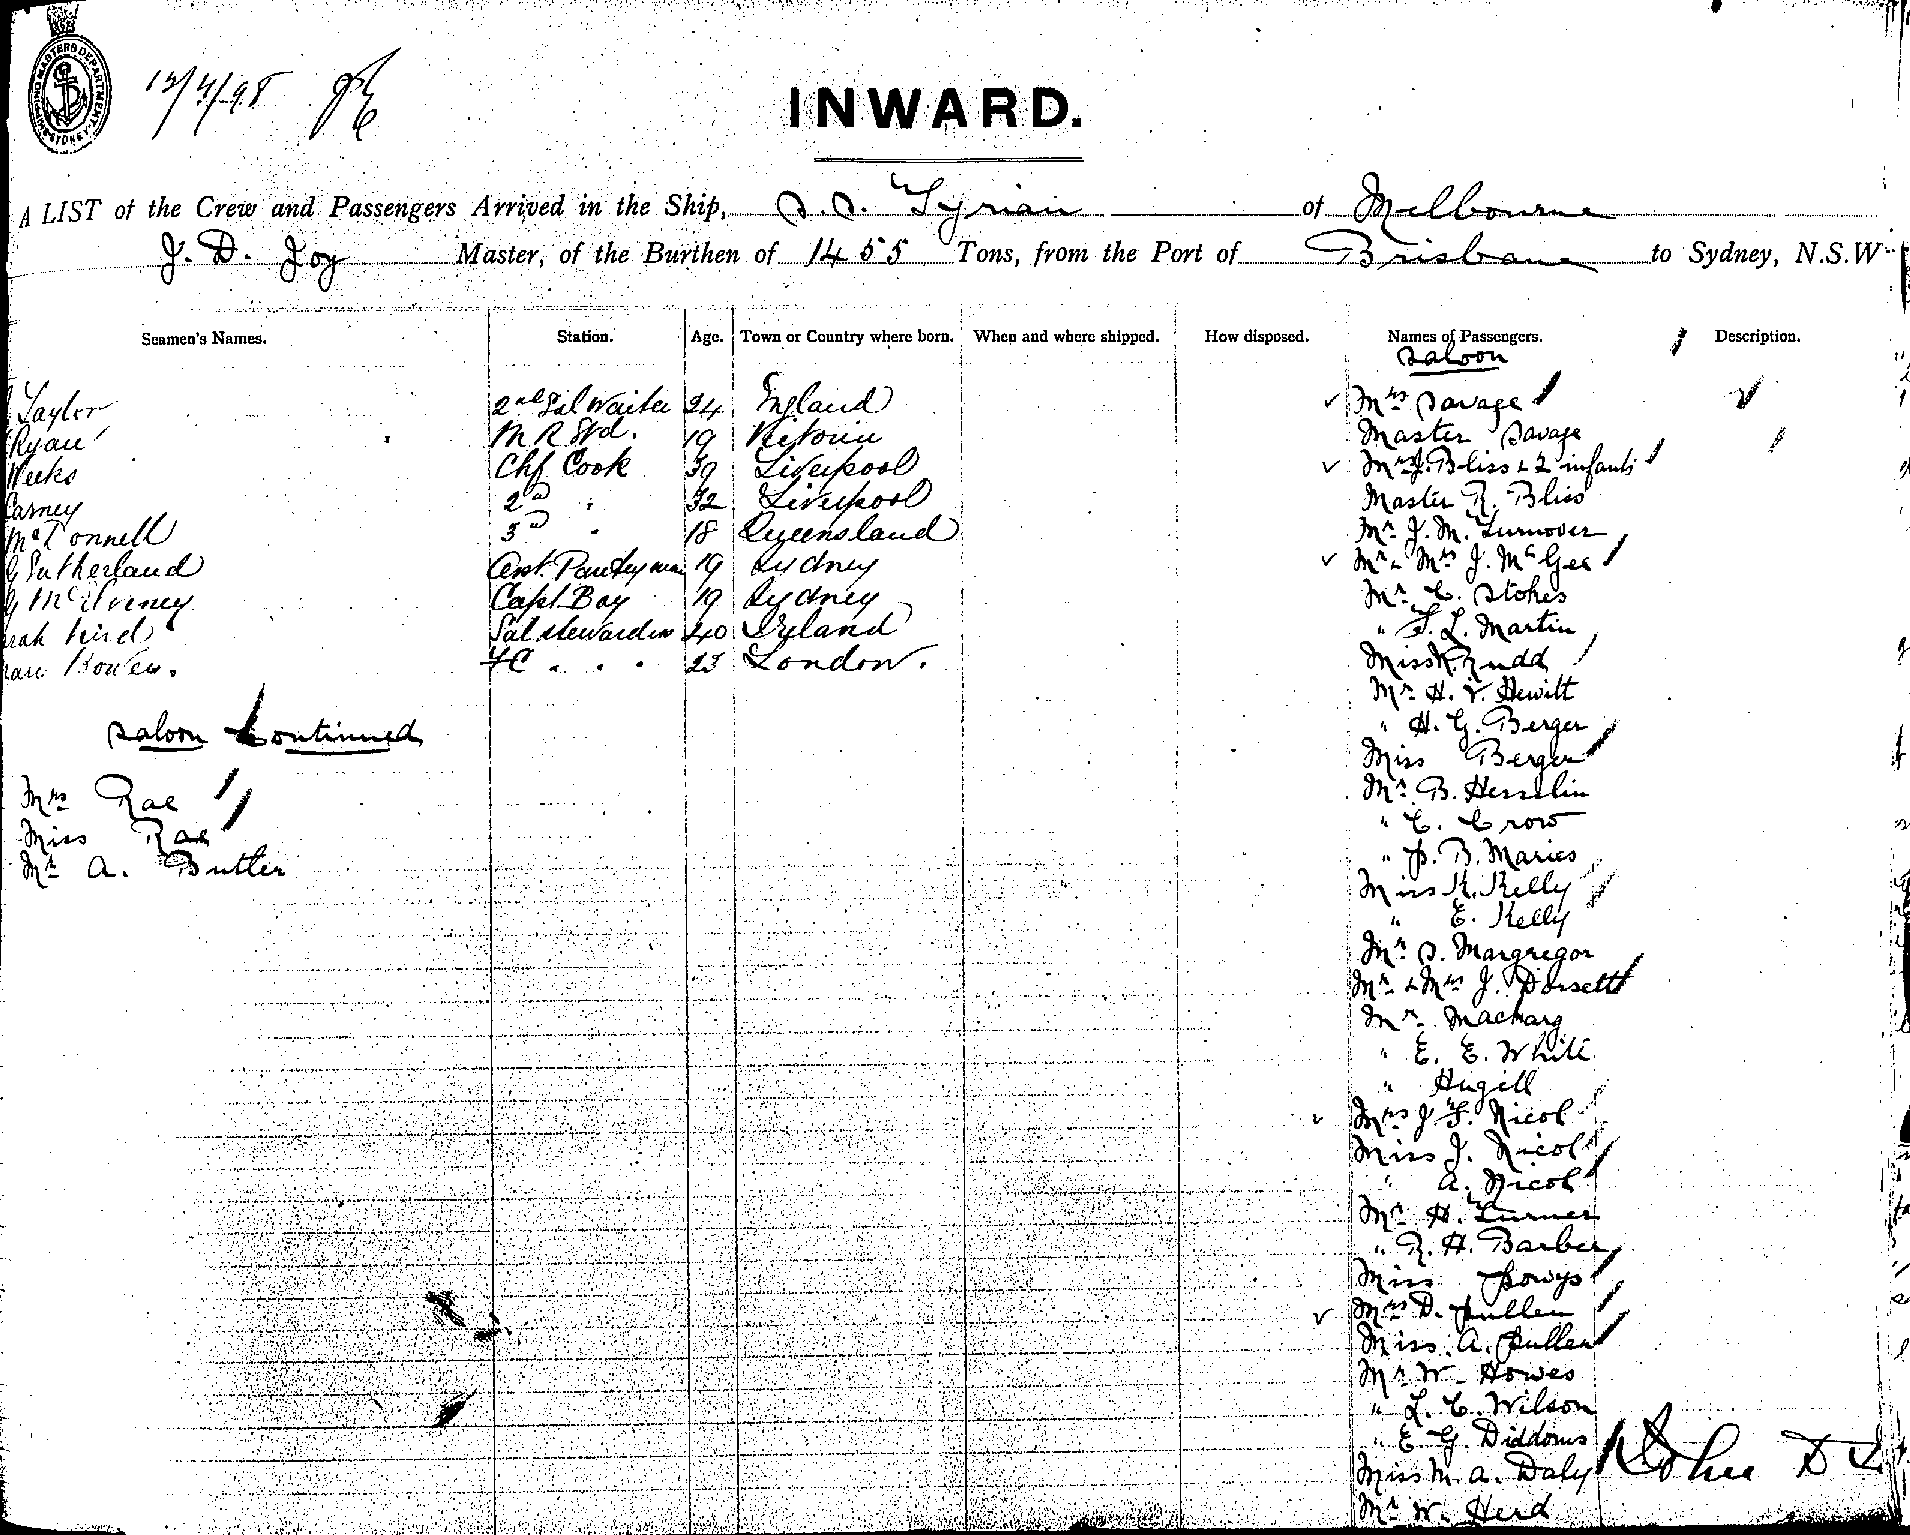 SHIPPING MASTERS DEPARTMENT SYDNEY
12/4/98
INWARD.
A LIST of the Crew and Passengers Arrived in the Ship, S.S. Tyrian of Melbourne
J. D. Joy Master, of the Burthen of 1455 Tons, from the Port of Brisbane to Sydney, N.S.W
Seamen's Names. Station. Age. Town or Country where born. When and where shipped. How disposed. Names of Passengers. Description.
Saloon
Taylor 2nd Sal Waiter 24 England Mrs Savage
Ryan M R Std. 19 Victoria Master Savage
Weeks Chf Cook 39 Liverpool Mrs J. Bliss & 2 infants
Carney 2d " 32 Liverpool Master R. Bliss
McDonnell 3d " 18 Queensland Mr J. M. Turnover
G Sutherland Asst. Pantryman 19 Sydney Mr & Mrs J. McGee
Capt. Boy 19 Sydney Mr C. Stokes
Sal Stewardess 40 Ireland " F. L. Martin
Bowen. FC " " " 23 London. Miss K. Rudd
Mr H. V. Hewitt
Saloon Continued
" H. G. Berger
Miss Berger
Mrs Rae
Mr B. Hesselin
Miss Rae
" C. Crow
Mr A. Butler
" P. B. Maries
Miss K. Kelly
" E. Kelly
Mr S. Margregor
Mr & Mrs J. Dorsett
Mr Macharg
" E. E. White
" Hugill
Mrs J F. Nicol
Miss J. Nicol
" A. Nicol
Mr H. Turner
" R. H. Barber
Miss Powys
Mrs D. Pullen
Miss A. Pullen
Mr W. Howes
" L. C. Wilson
" E. G. Diddoms
Miss M. A. Daly John D
Mr W. Herd